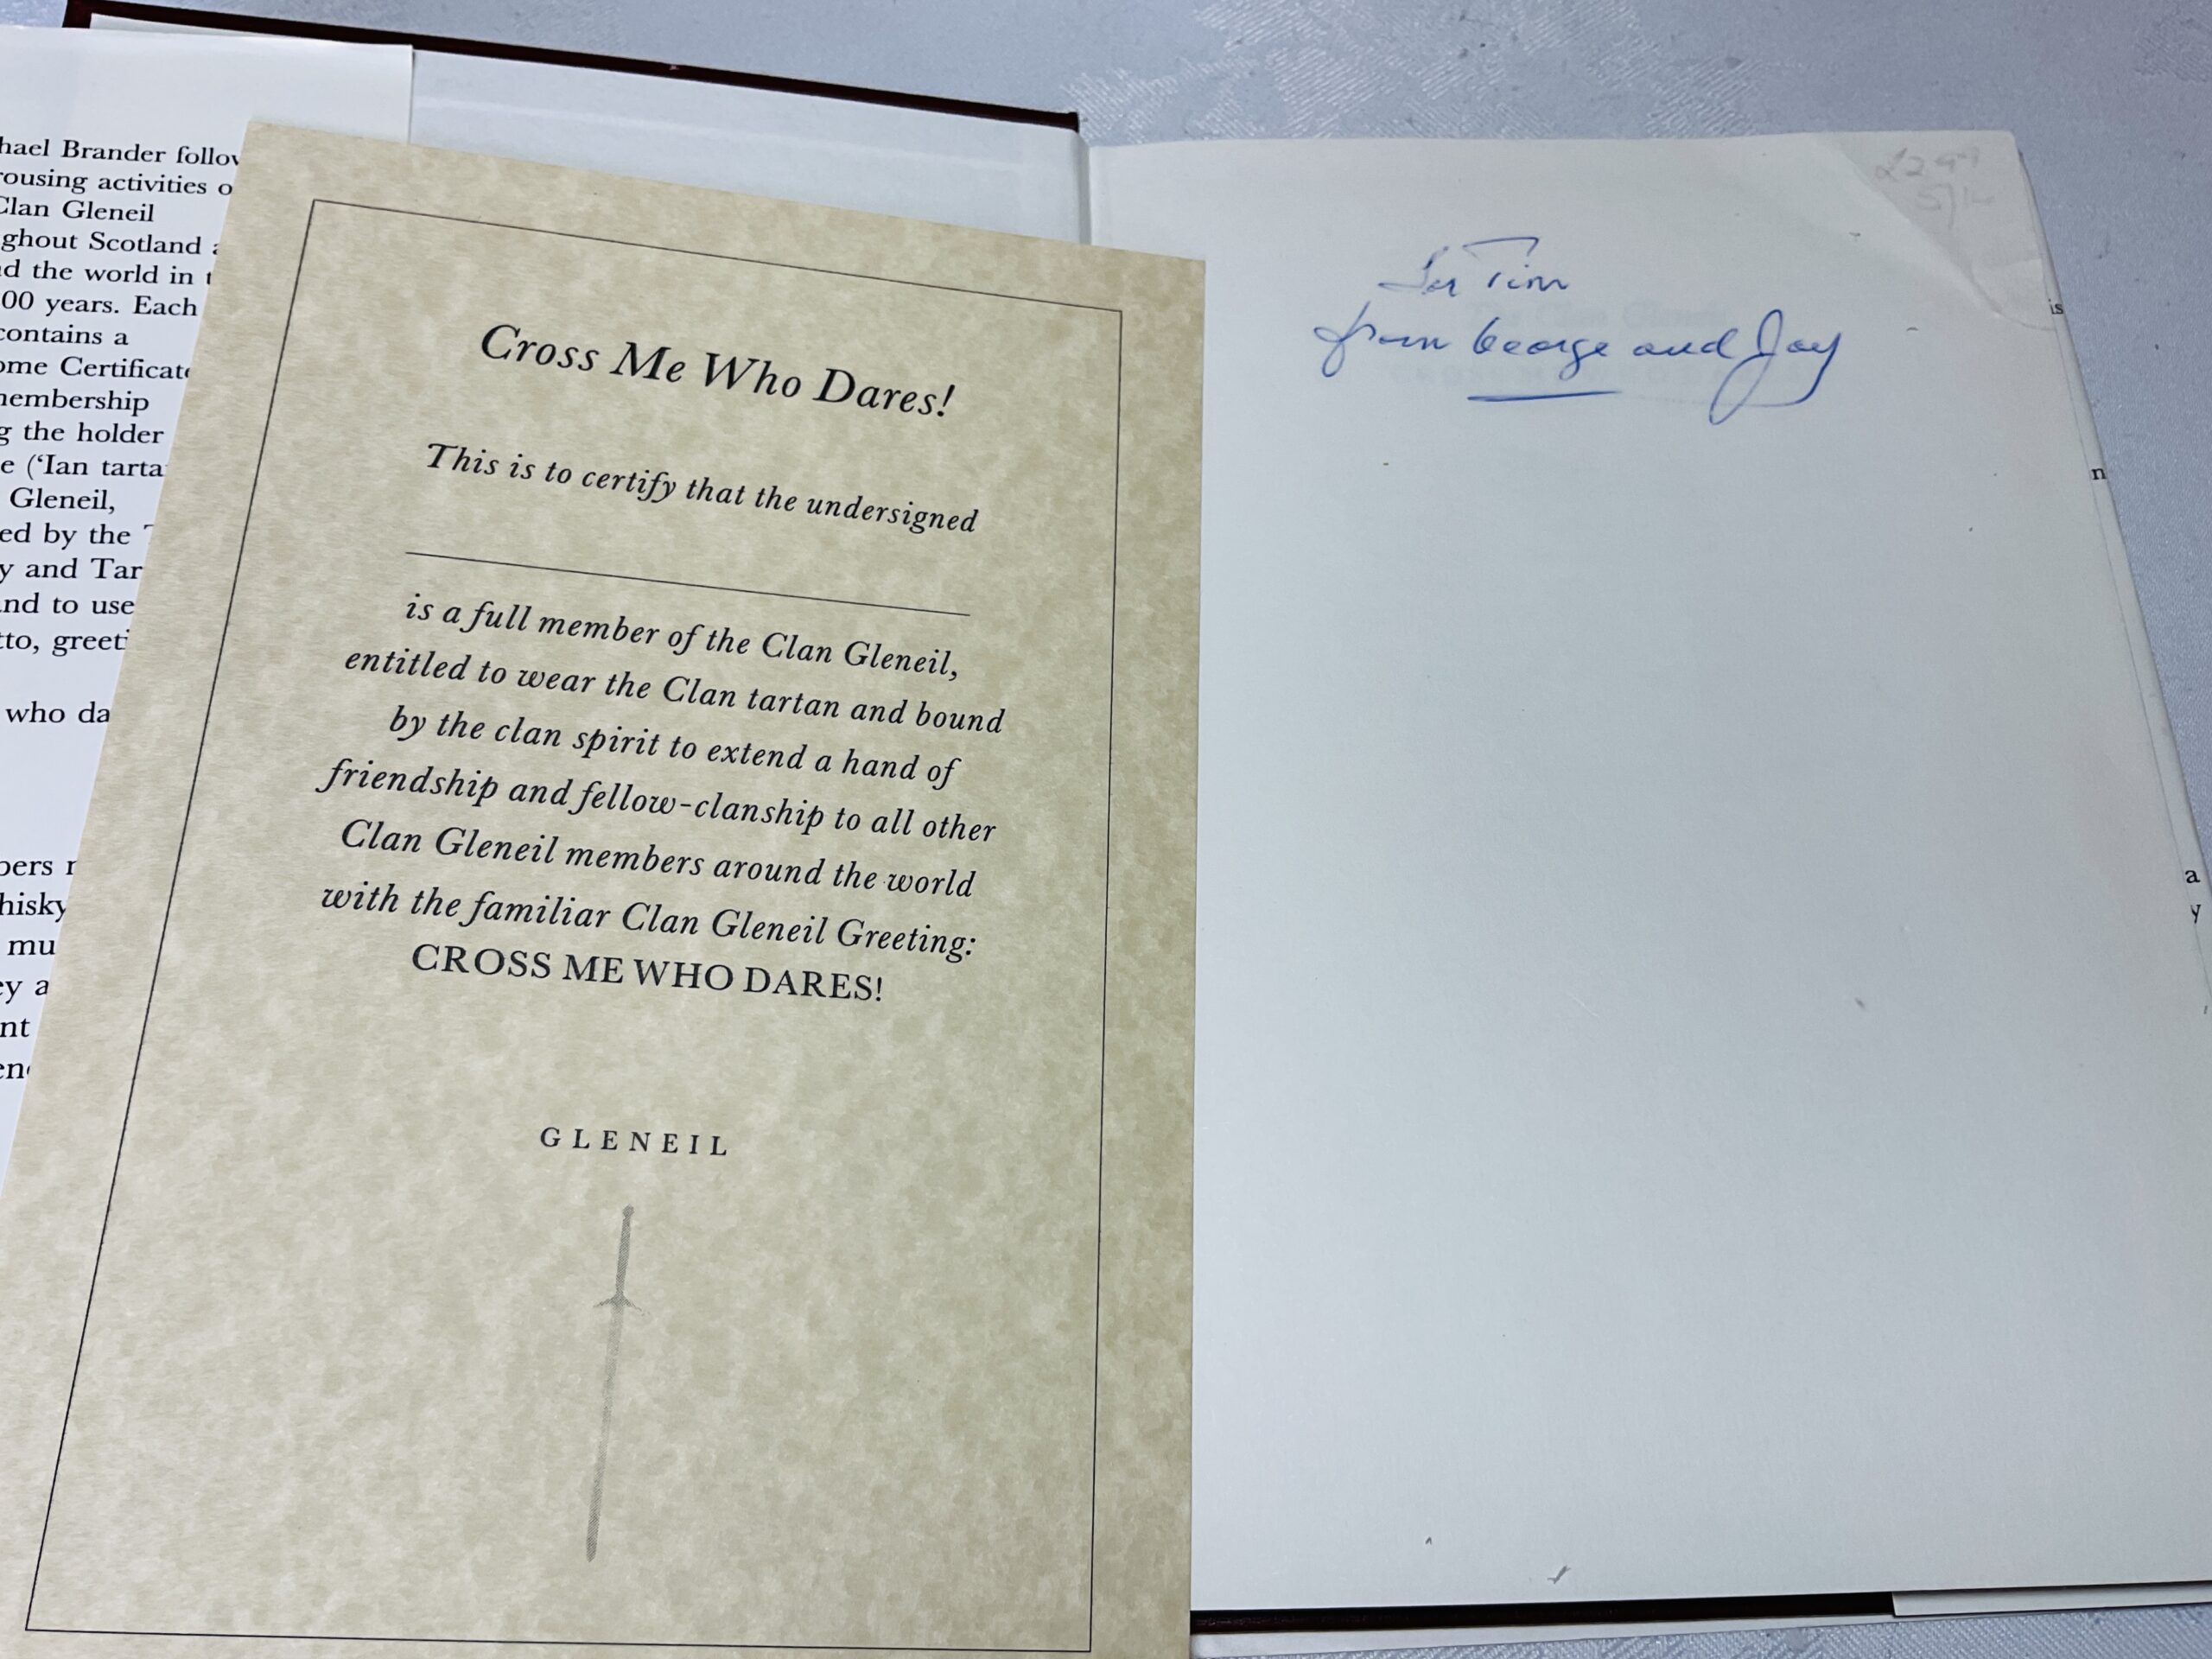 hael Brander follow
rousing activities o
Clan Gleneil
ghout Scotland a
d the world in t
00 years. Each
contains a
ome Certificate
membership
g the holder
e (‘Ian tarta
Gleneil,
ed by the T
y and Tar
nd to use
tto, greeti
who da
bers r
hisky
mu
ey a
nt
en
Cross Me Who Dares!
This is to certify that the undersigned
is a full member of the Clan Gleneil,
entitled to wear the Clan tartan and bound
by the clan spirit to extend a hand of
friendship and fellow-clanship to all other
Clan Gleneil members around the world
with the familiar Clan Gleneil Greeting:
CROSS ME WHO DARES!
GLENEIL
Tim
from George and Joy
is
n
a
y